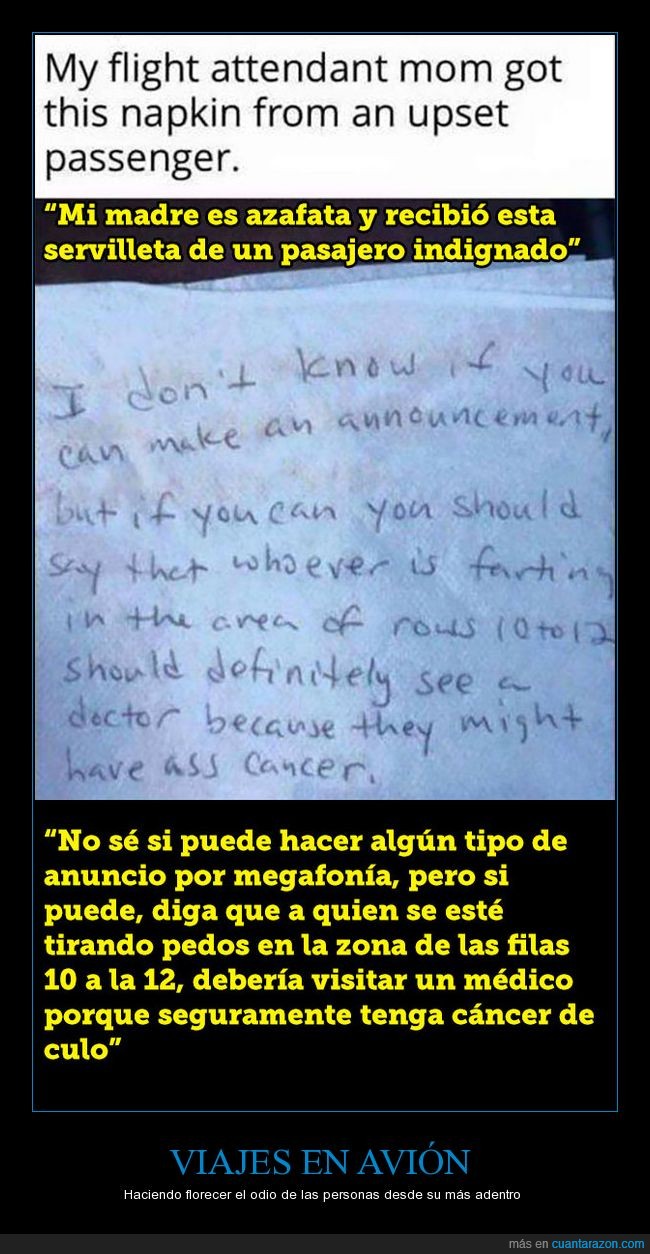 My flight attendant mom got
this napkin from an upset
passenger.
“Mi madre es azafata y recibió esta
servilleta de un pasajero indignado”
I don't know if you
can make an announcement,
but if you can you should
say that whoever is farting
in the area of rows 10 to 12
should definitely see a
doctor because they might
have ass cancer.
“No sé si puede hacer algún tipo de
anuncio por megafonía, pero si
puede, diga que a quien se esté
tirando pedos en la zona de las filas
10 a la 12, debería visitar un médico
porque seguramente tenga cáncer de
culo”
VIAJES EN AVIÓN
Haciendo florecer el odio de las personas desde su más adentro
más en cuantarazon.com